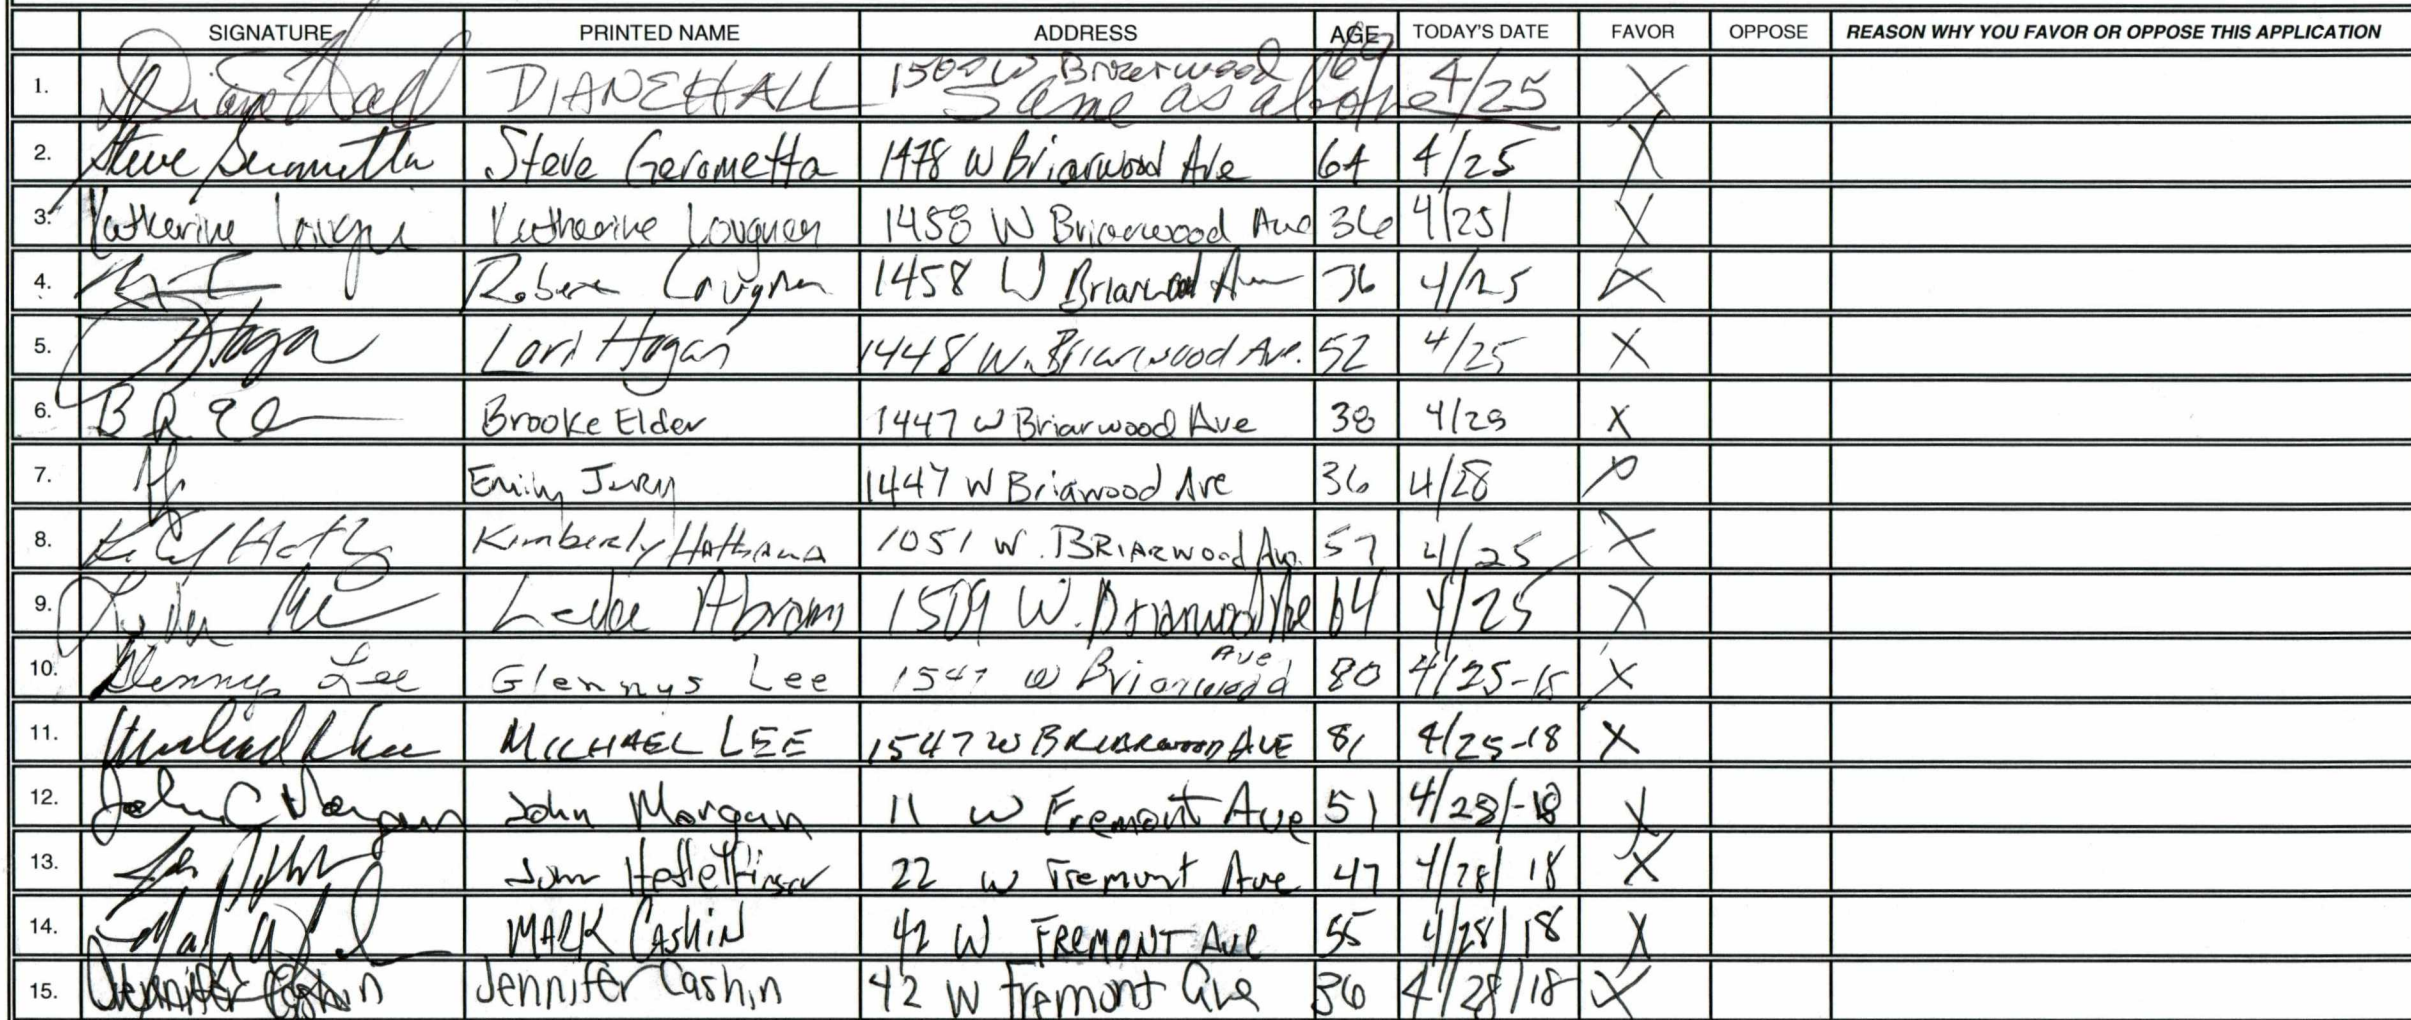 SIGNATURE PRINTED NAME ADDRESS AGE TODAY'S DATE FAVOR OPPOSE REASON WHY YOU FAVOR OR OPPOSE THIS APPLICATION
1. Diane Hall DIANE HALL W 69 4/25 X
Same as above
2. Steve Gerometta Steve Gerometta 1478 W Briarwood Ave 64 4/25 X
3. Katherine Katherine 1458 W Briarwood Ave 36 4/25/ X
4. 1458 W Briarwood 36 4/25 X
5. Hogan Lori Hogan 1448 W. Briarwood Ave. 52 4/25 X
6. Brooke Elder 1447 W Briarwood Ave 38 X
7. Emily Jury 1447 W Briawood Ave 36 4/28
8. Kimberly 1051 W. BRIARWOOD Ave. 57 4/25 X
9. Abrams W. Briarwood Ave 64 4/25 X
Ave
10. Glennys Lee Glennys Lee 1547 W Briarwood 80 X
11. MICHAEL LEE 1547 W BRIARWOOD AVE 81 4/25-18 X
12. John C Morgan John Morgan 11 W Fremont Ave 51 4/28/-18 X
13. John 22 W Fremont Ave 47 4/28/18 X
14. MARK CASHIN 42 W FREMONT AVE 55 4/28/18 X
15. Jennifer Cashin Jennifer Cashin 42 W Fremont Ave 4/28/18 X